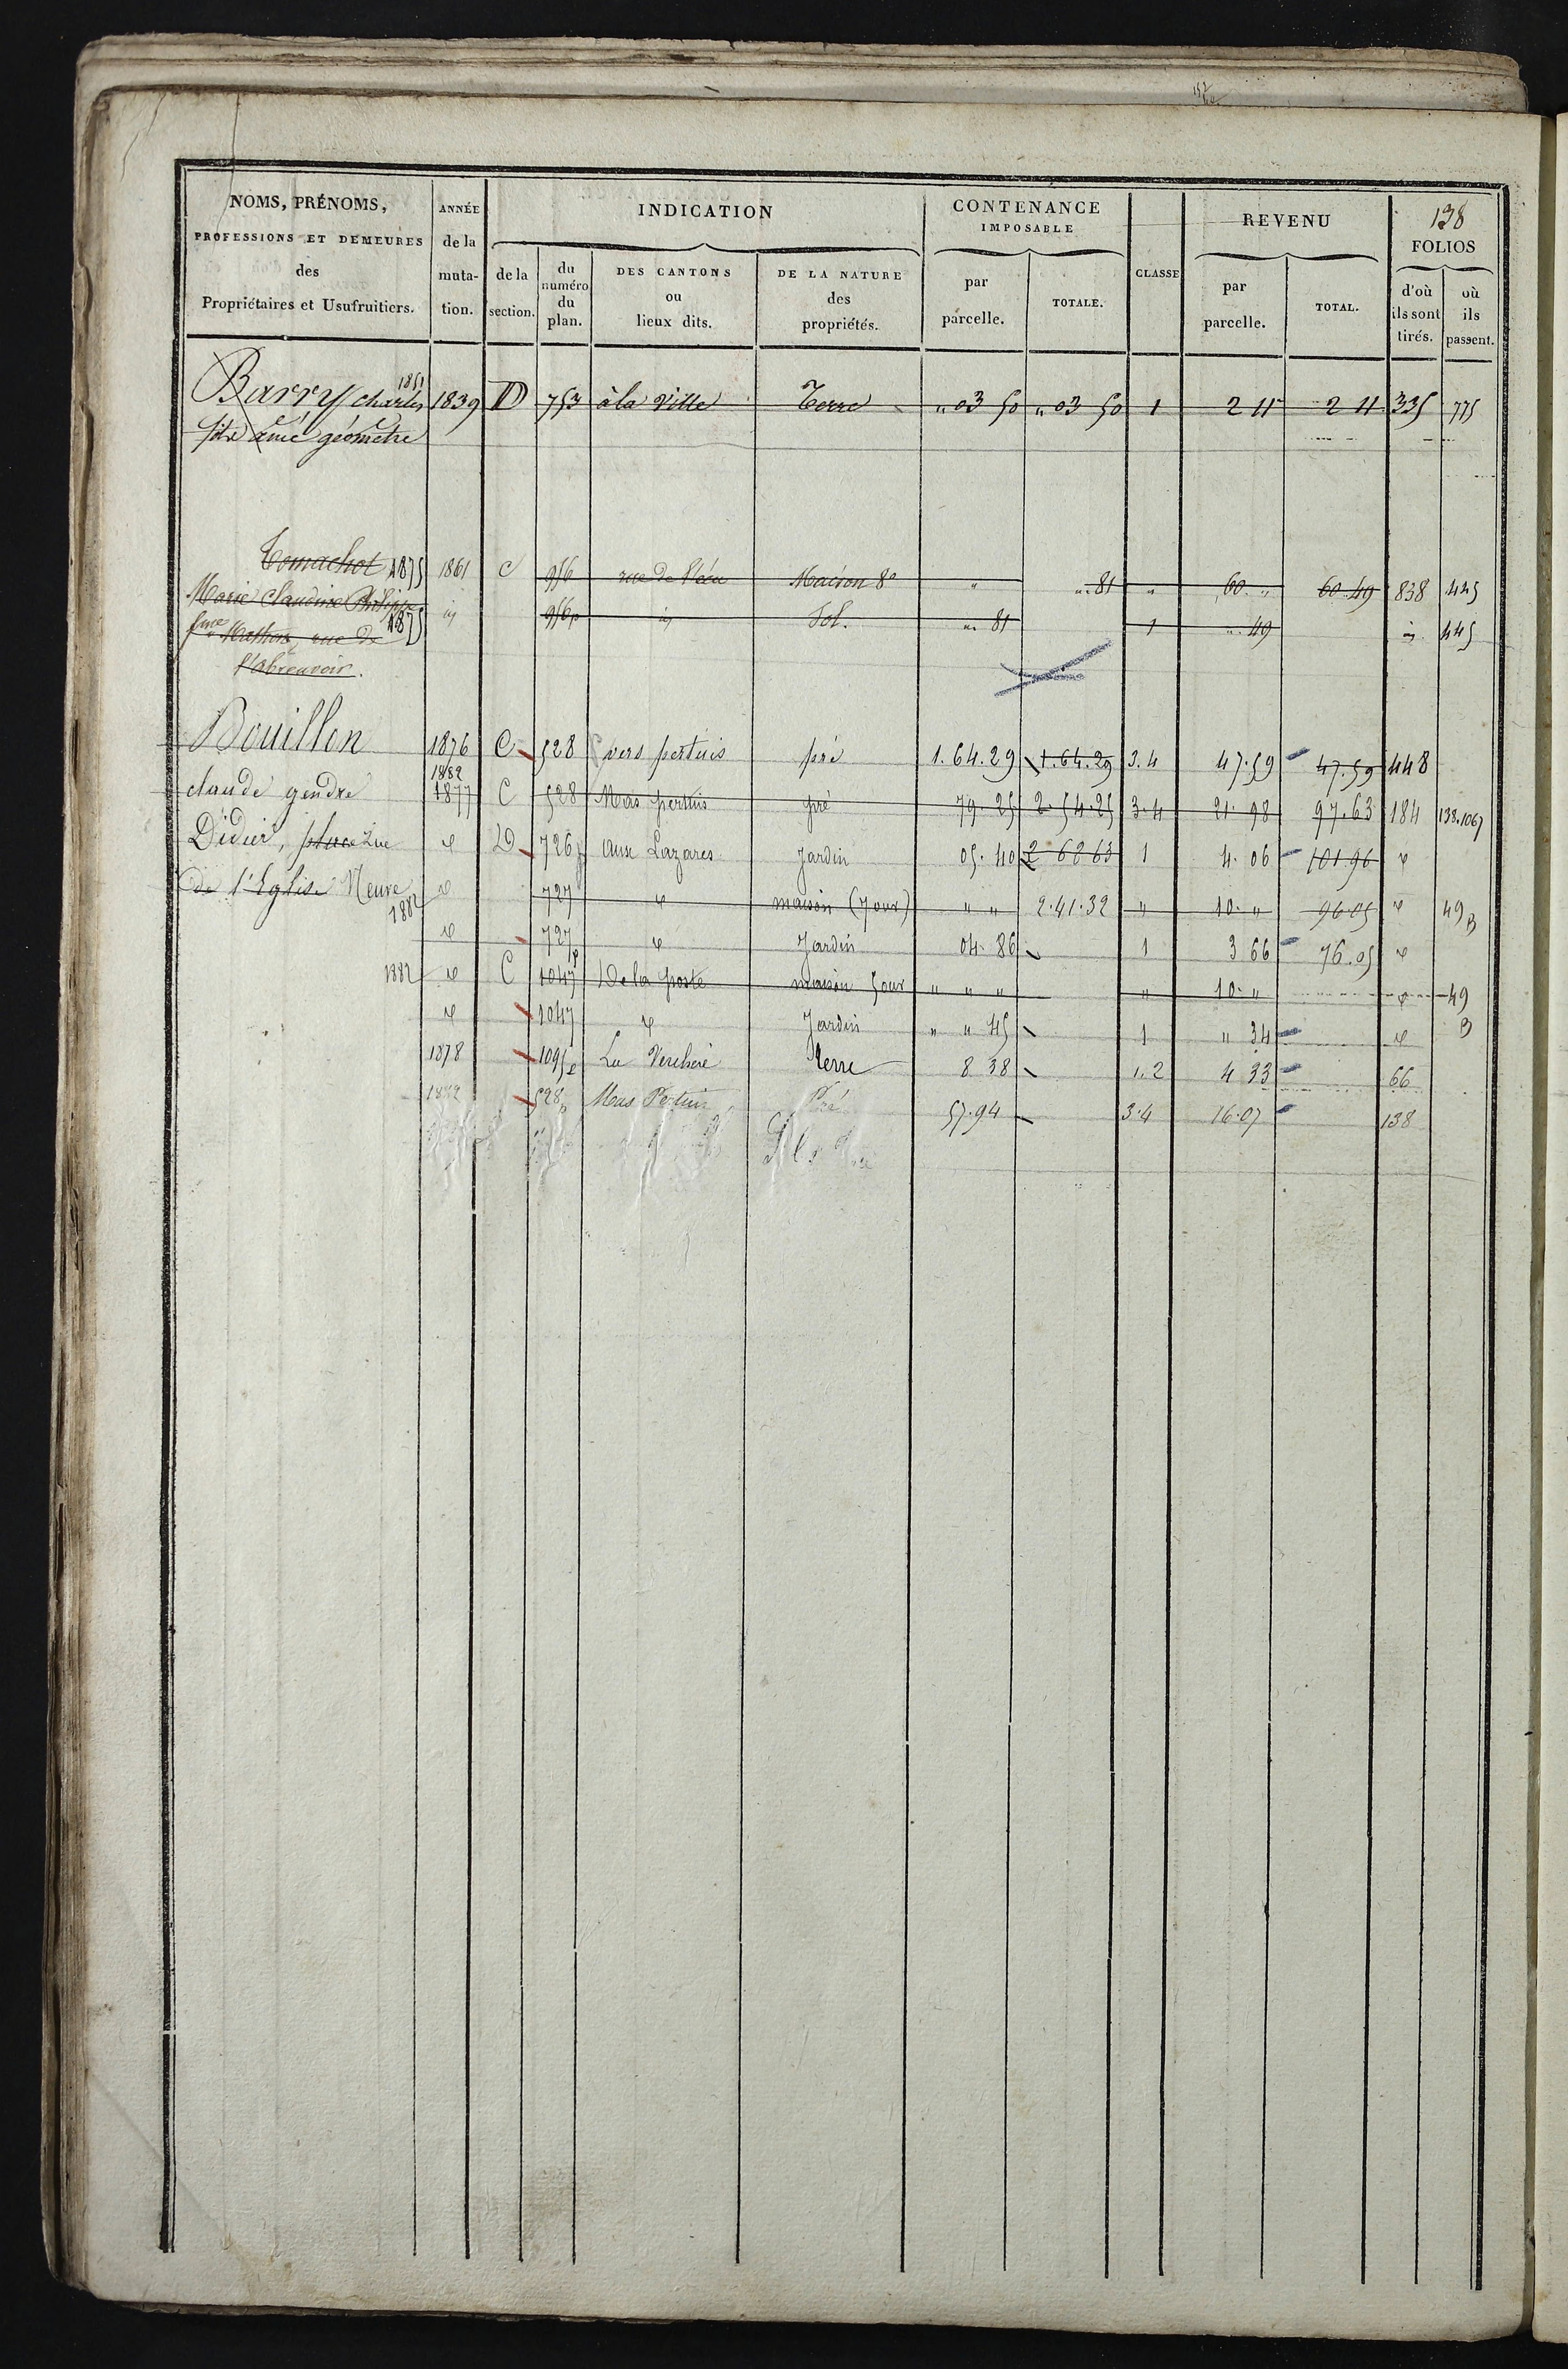 138
NOMS, PRÉNOMS, PROFESSIONS ET DEMEURES des Propriétaires et Usufruitiers.
ANNÉE de la muta-tion.
INDICATION
de la section.
du numéro du plan.
DES CANTONS ou lieux dits.
DE LA NATURE des propriétés.
CONTENANCE IMPOSABLE
par parcelle.
TOTALE.
CLASSE
REVENU
par parcelle.
TOTAL.
FOLIOS
d'où ils sont tirés.
où ils passent.
1851
Barry charles 1839 D 753 à la ville Terre " 03 50 " 03 50 1 2 11 2 11 335 775
géomètre
Tomachot 1875 1861 C 956 rue de l'écu Maison 8e " " 81 " 60 " 60 49 838 445
Marie Claudine Philippe
1875 id 956p id Sol. " 81 1 " 49 id 445
rue de
l'abreuvoir.
Bouillon 1876 C 528 vers pertuis pré 1.64.29 1.64.29 3.4 47.59 47.59 448
1882
claude gendre 1877 C 528 Mas pertuis pré 79.25 2.54.25 3.4 21.98 97.63 184 138.1067
Didier, place Rue d D 726p aux Lazares Jardin 05.40 2 62 63 1 4.06 101 96 d
de l'Eglise Neuve d 727 d maison (7 ouv) " " 2.41.32 " 10 " 96.05 d 49 B
1882
d 727p d Jardin 04.86 1 3 66 76.05 d
1882 d C 1047 De la poste maison 5 ouv " " " " 10 " d 49
d 1047 d Jardin " " 45 1 " 34 d B
1878 1095p La Verchere terre 8 38 1.2 4 33 66
1882 528p Mas Pertuis Pré 57.94 3.4 16.07 138